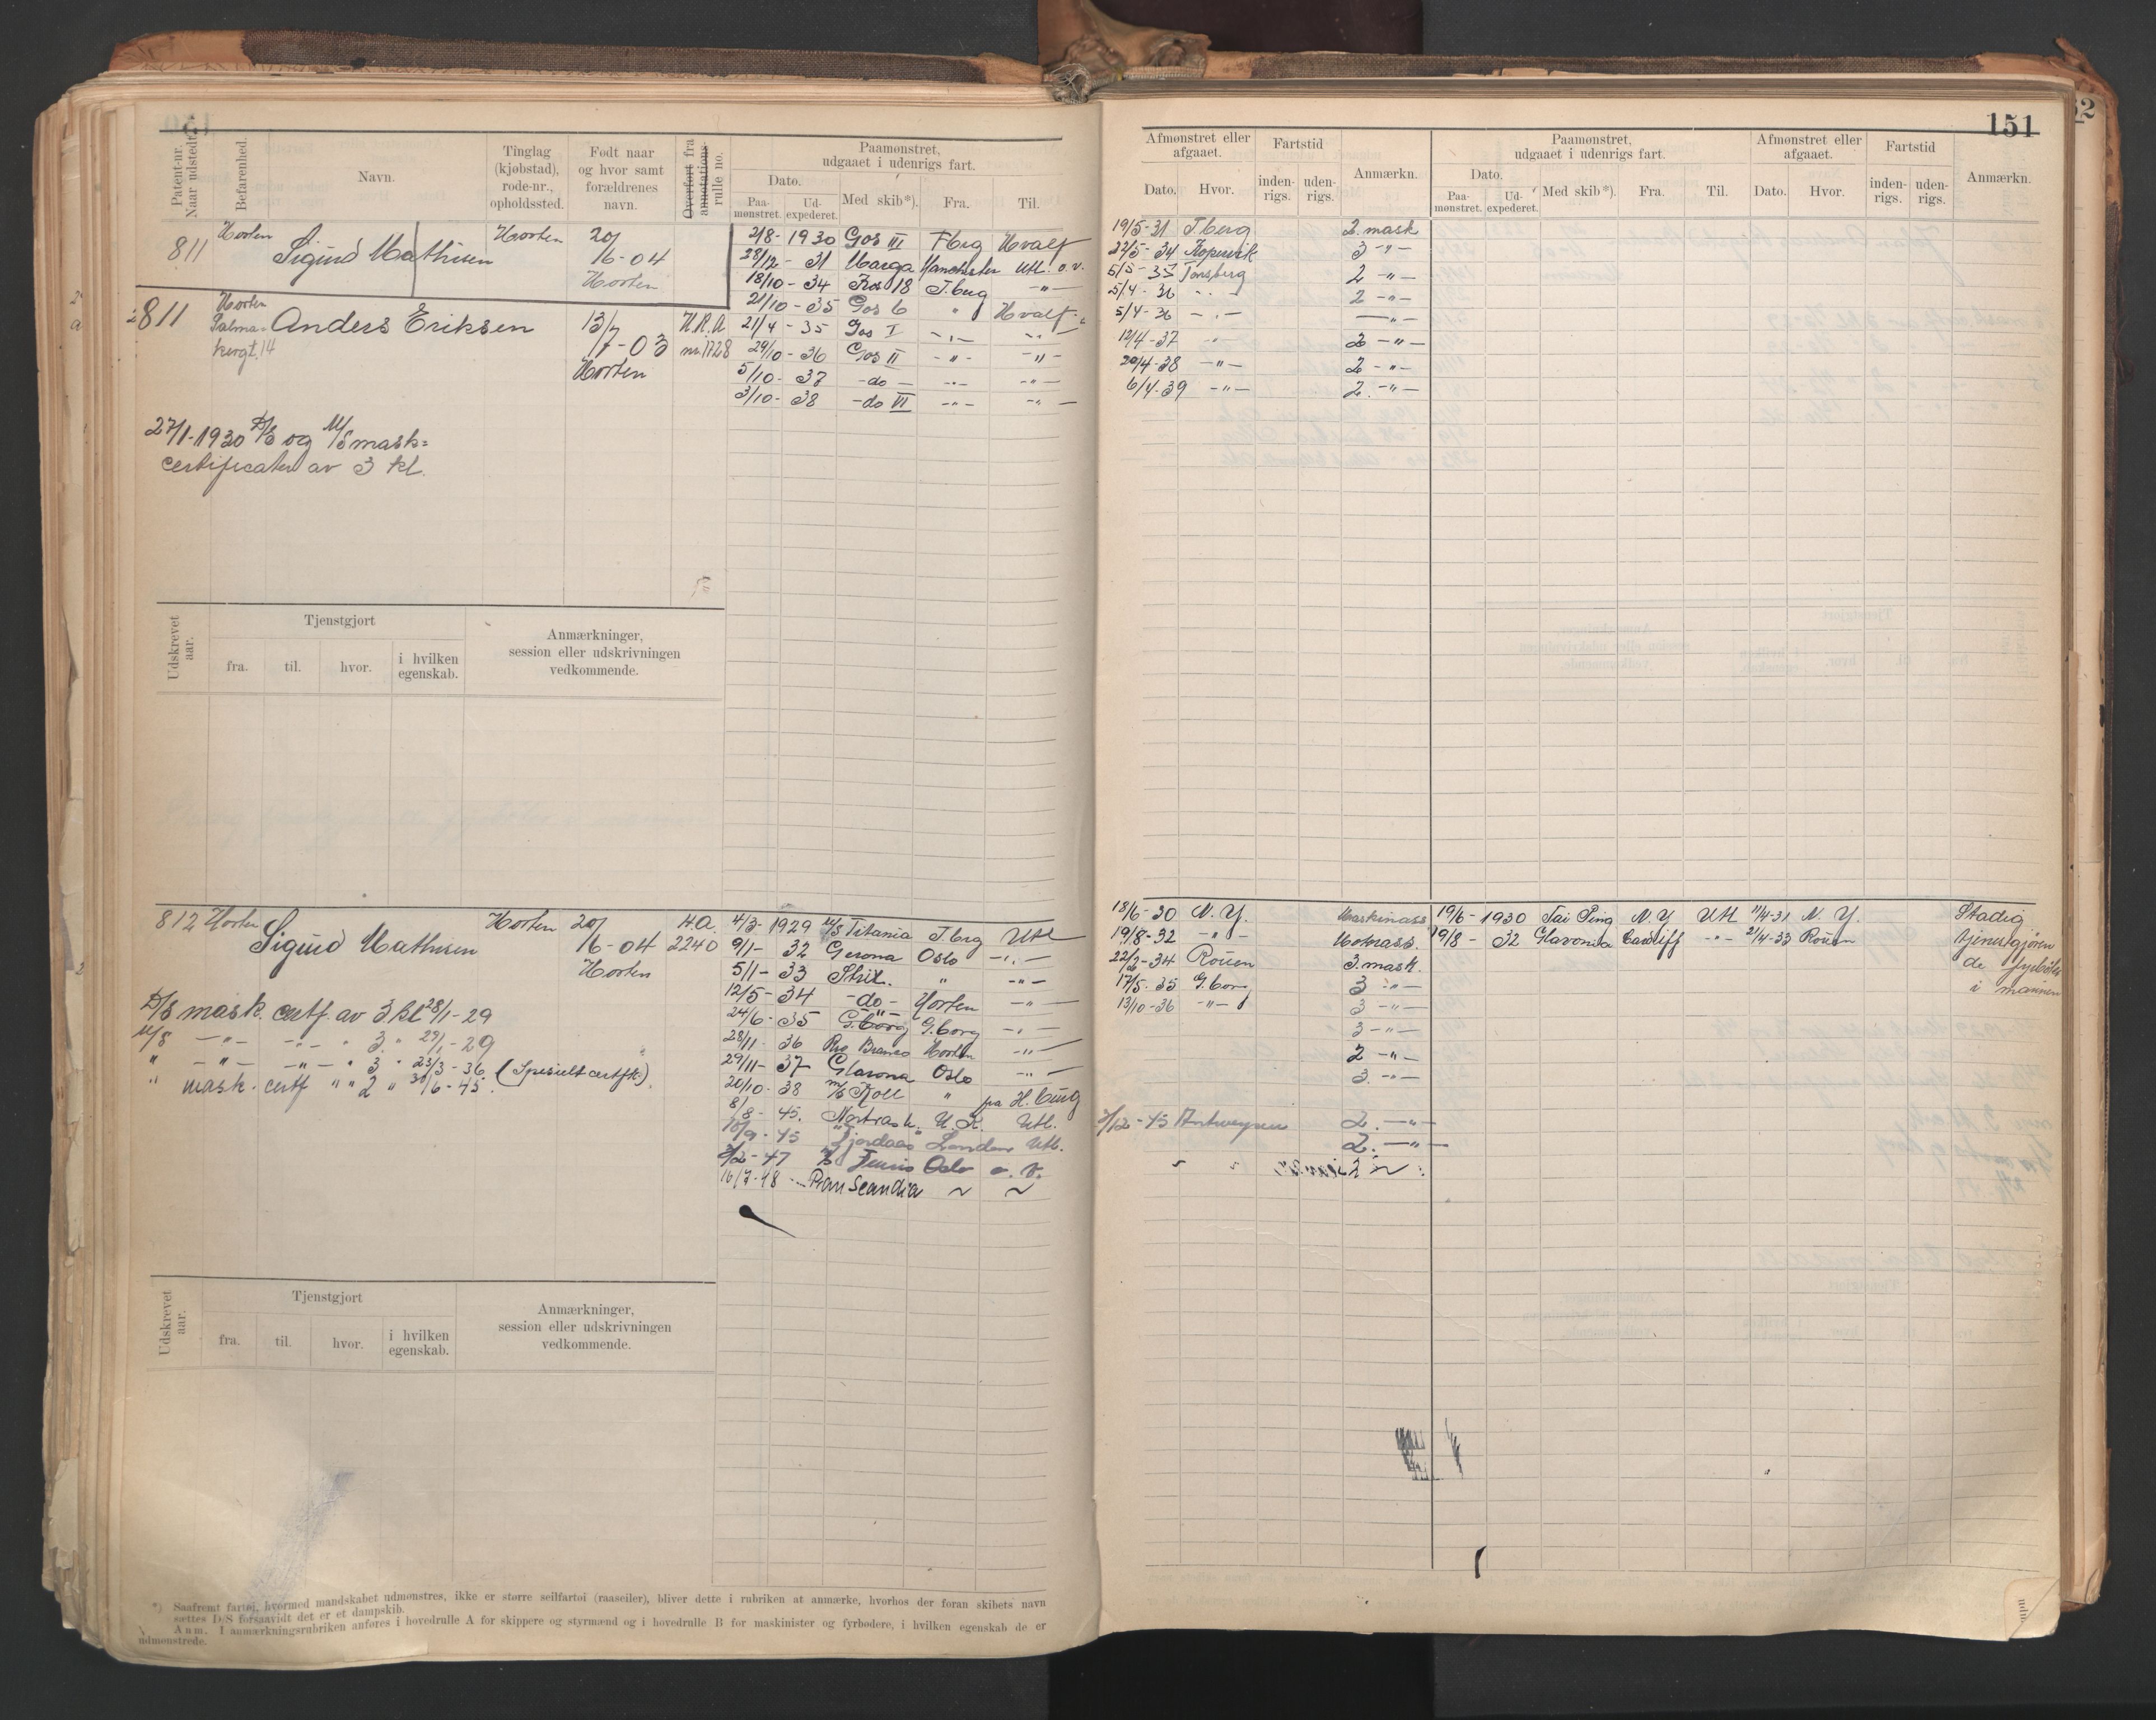 151
Patent-nr. Naar udstedt.
Befarenhed.
Navn.
Tinglag (kjøbstad), rode-nr., opholdssted.
Født naar og hvor samt forældrenes navn.
Overført fra annotations-rulle no.
Paamønstret, udgaaet i udenrigs fart.
Dato.
Paa-mønstret.
Ud-expederet.
Med skib*).
Fra.
Til.
Afmønstret eller afgaaet.
Dato.
Hvor.
Fartstid
inden-rigs.
uden-rigs.
Anmærkn.
Paamønstret, udgaaet i udenrigs fart.
Dato.
Paa-mønstret.
Ud-expederet.
Med skib*).
Fra.
Til.
Afmønstret eller afgaaet.
Dato.
Hvor.
Fartstid
inden-rigs.
uden-rigs.
Anmærkn.
811 Horten Sigurd Mathisen Horten 20/
16-04
Horten
811 Horten Anders Eriksen 13/ H.R.A
7-03 no. 1728
Horten
27/1-1930 D/S og M/S mask=
certifikater av 3 kl.
2/8- 1930 Gos III T.berg Hvalf 19/5-31 T.berg 2. mask
28/12- 31 Marga Manchester Utl. o.v. 22/5-34 Kopervik 3 -"-
18/10- 34 Kos 18 T.berg -"- 5/5-35 Tønsberg 2 -"-
21/10- 35 Gos 6 " Hvalf. 5/4-36 -"- 2 -"-
21/4- 35 Gos I -"- -"- 5/4-36 -"- -"-
29/10- 36 Gos II -"- -"- 12/4-37 -"- 2 -"-
5/10- 37 -do- -"- -"- 20/4-38 -"- 2 -"-
3/10- 38 -do VI -"- -"- 6/4-39 -"- 2. -"-
Udskrevet aar.
Tjenstgjort
fra.
til.
hvor.
i hvilken egenskab.
Anmærkninger, session eller udskrivningen vedkommende.
812 Horten Sigurd Mathisen Horten 20/ H.A.
16-04 2240
Horten
D/S mask. certf. av 3 kl 28/1-29
M/S -"- -"- " 3. " 29/1-29
" -"- -"- " 3 " 23/3-36 (Spesielt certfk.)
" mask. certf " " 2 " 30/6-45.
4/3- 1929 M/S Titania T.berg Utl 18/6-30 N.Y. Maskinass 19/6- 1930 Tai Ping N.Y Utl 11/4-31 N.Y. Stadig
9/1- 32 Gerona Oslo -"- 19/8-32 -"- Motorass. 19/8- 32 Glavona Cardiff -"- 21/4-33 Rouen tjenestgjøren
5/1- 33 Strix. " -"- 22/2-34 Rouen 3. mask. de fyrbøter
12/5- 34 -do- Horten -"- 17/5.35 G.borg 3 -"- i marinen
24/6- 35 G.borg G.borg -"- 13/10-36 -"- 3 -"-
28/11- 36 Rio Branco Horten -"- 3 -"-
29/11- 37 Glavona Oslo -"- 2 -"-
20/10- 38 M/S Koll " fra H.burg 3. -"-
8/8- 45. U.K. Utl. 3/12-45 Antwerpen 2. -"-
10/9- 45 "Fjordaas" London Utl. 2. -"-
3/2- 47 Oslo o.v.
16/7-48 Pan Scandia ~ ~
Udskrevet aar.
Tjenstgjort
fra.
til.
hvor.
i hvilken egenskab.
Anmærkninger, session eller udskrivningen vedkommende.
*) Saafremt fartøi, hvormed mandskabet udmønstres, ikke er større seilfartøi (raaseiler), bliver dette i rubriken at anmærke, hvorhos der foran skibets navn
sættes D/S forsaavidt det er et dampskib.
Anm. I anmærkningsrubriken anføres i hovedrulle A for skippere og styrmænd og i hovedrulle B for maskinister og fyrbødere, i hvilken egenskab de er
udmønstrede.